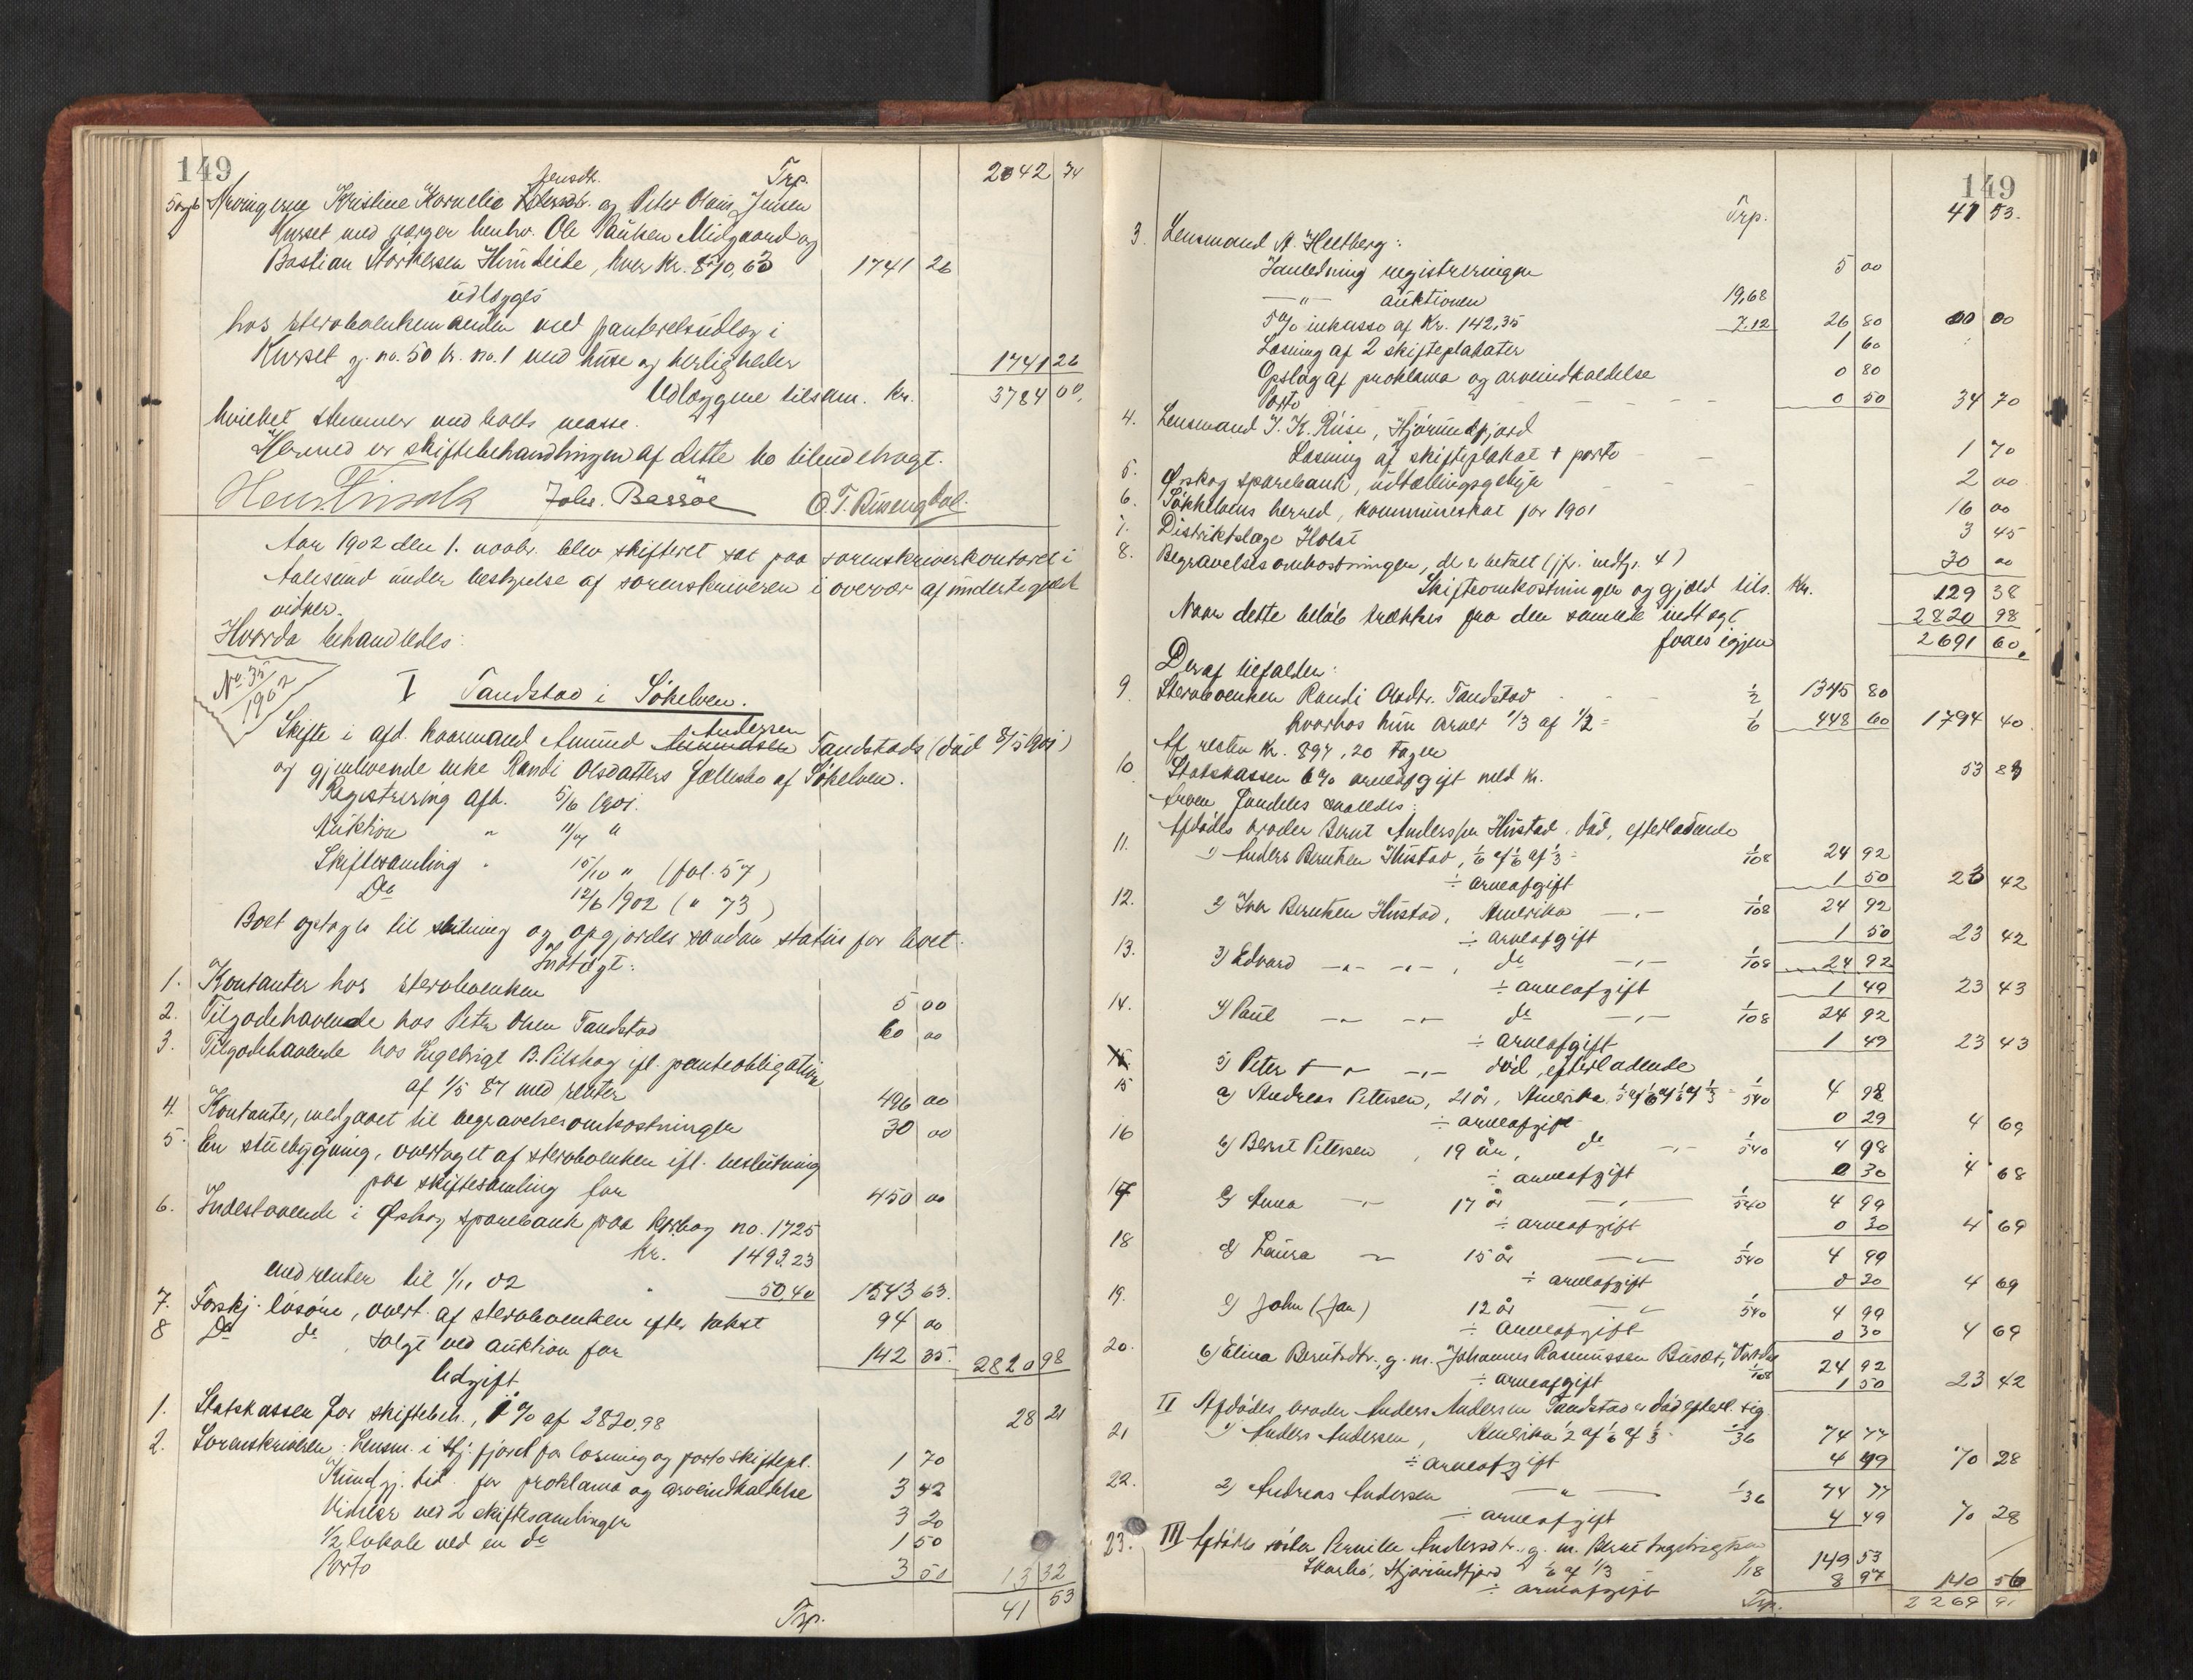 149
Trp. 2042 74
Jensdt.
Arvingerne Kristine Kornelia og Peter Olaus Jensen
Kurset med værger henhv. Ole Paulsen Midgaard og
Bastian Størkersen Humleide, hver Kr. 870,63 1741 26
udlægges
hos sterboenkemanden med panteretsudlæg i
Kurset g. no. 50 br. no. 1 med huse og herligheder 1741 26
Udlæggene tilsam. Kr. 3784 00
hvilket stemmer med boets masse.
Hermed er skiftebehandlingen af dette bo tilendebragt.
Johs. Bassöe O. T. Busengdal
Aar 1902 den 1. novbr. blev skifteret sat paa sorenskriverkontoret i
Aalesund under bestyrelse af sorenskriveren i overvær af undertegnede
vidner.
Hvorda behandledes:
No. 35/1902
I Tandstad i Sökelven.
Andersen
Skifte i afd. kaarmand Amund Amundsen Tandstads (död 8/5 1901)
og gjenlevende enke Randi Olsdatters fællesbo af Sökelven.
Registrering afh. 5/6 1901.
Auktion " 11/7 "
Skiftesamling " 15/10 " (fol. 57)
Do 12/6 1902 ( " 73 )
Boet optoges til slutning og opgjordes saadan status for boet.
Indtægt:
1. Kontanter hos sterboenken 5 00
2. Tilgodehavende hos Peter Olsen Tandstad 60 00
3. Tilgodehavende hos Ingebrigt B. Pilskog ifl. panteobligation
af 1/5 87 med renter 496 00
4. Kontanter, medgaaet til begravelsesomkostninger 30 00
5. En stuebygning, overtaget af sterboenken ifl. beslutning
paa skiftesamling for 450 00
6. Indestaaende i Ørskog sparebank paa bog no. 1725
kr. 1493.23
med renter til 1/11 02 " 50,40 1543 63.
7. Forskj. lösöre, overt. af sterboenken efter takst 94 00
8 Do do solgt ved auktion for 142 35. 2820 98
Udgift
1. Statskassen for skiftebeh., 1 % af 2820,98 28 21
2. Sorenskriveren: Lensm. i Hj. fjord for læsning og porto skiftepl. 1 70
Kundgj. tid. for proklama og arveindkaldelse 3 42
Vidner ved 2 skiftesamlinger 3 20
1/2 lokale ved en do 1 50
Porto 3 50 13 32
Trp. 41 53
149
Trp. 41 53.
3. Lensmand A. Heltberg:
I anledning registreringen 5 00
— " — auktionen 19,68
5 % inkasso af Kr. 142,35 7.12 26 80 00 00
Læsning af 2 skifteplakater 1 60
Opslag af proklama og arveindkaldelse 0 80
Porto 0 50 34 70
4. Lensmand J. K. Riise, Hjörundfjord
Læsning af skifteplakat + porto 1 70
5. Ørskog sparebank, udtællingsgebyr 2 00
6. SöKkelvens herred, kommuneskat for 1901 16 00
7. Distriktslæge Holst 3 45
8. Begravelsesomkostninger, de er betalt (jfr. indtgt. 4) 30 00
Skifteomkostninger og gjæld tils. Kr. 129 38
Naar dette belöb trækkes fra den samlede indtægt 2820 98
faaes igjen 2691 60.
Deraf tilfalder:
9. Sterboenken Randi Olsdtr. Tandstad 1/2 1345 80
hvorhos hun arver 1/3 af 1/2 = 1/6 448 60 1794 40
Af resten Kr. 897,20 tager
10. Statskassen 6% arveafgift med Kr. 53 83
Arven fordeles saaledes:
Afdödes broder Bernt Anderssen Hustad död, efterladende
11. 1) Anders Berntsen Hustad, 1/6 af 1/6 af 1/3 = 1/108 24 92
÷ arveafgift 1 50 23 42
12. 2) Iver Berntsen Hustad, Amerika —"— 1/108 24 92
÷ arveafgift 1 50 23 42
13. 3) Edvard —"— —"—, do —"— 1/108 24 92
÷ arveafgift 1 49 23 43
14. 4) Paul —"— —"— do —"— 1/108 24 92
÷ arveafgift 1 49 23 43
15 5) Peter —"— —"— död, efterladende
15 a) Andreas Petersen, 21 år, Amerika, 1/5 af 1/6 af 1/6 af 1/3 = 1/540 4 98
÷ arveafgift 0 29 4 69
16 b) Bernt Petersen, 19 år, do —"— 1/540 4 98
÷ arveafgift 0 30 4 68
17 c) Anna —"— 17 år —"— 1/540 4 99
÷ arveafgift 0 30 4 69
18 d) Laura —"— 15 år —"— 1/540 4 99
÷ arveafgift 0 30 4 69
19. e) John (Jan) 12 år —"— 1/540 4 99
÷ arveafgift 0 30 4 69
20. 6) Elina Berntsdtr., g. m. Johannes Rasmussen Busæt, 1/108 24 92
÷ arveafgift 1 50 23 42
II Afdödes broder Anders Andersen Tandstad er död efterl. sig
21 1) Anders Andersen, Amerika 1/2 af 1/6 af 1/3 1/36 74 77
÷ arveafgift 4 49 70 28
22. 2) Andreas Andersen —"— 1/36 74 77
÷ arveafgift 4 49 70 28
23. III Afdödes söster Pernille Andersdtr., g. m. Bernt Ingebrigtsen
Skarbö, Hjörundfjord 1/6 af 1/3 1/18 149 53
÷ arveafgift 8 97 140 56
Trp. 2269 91